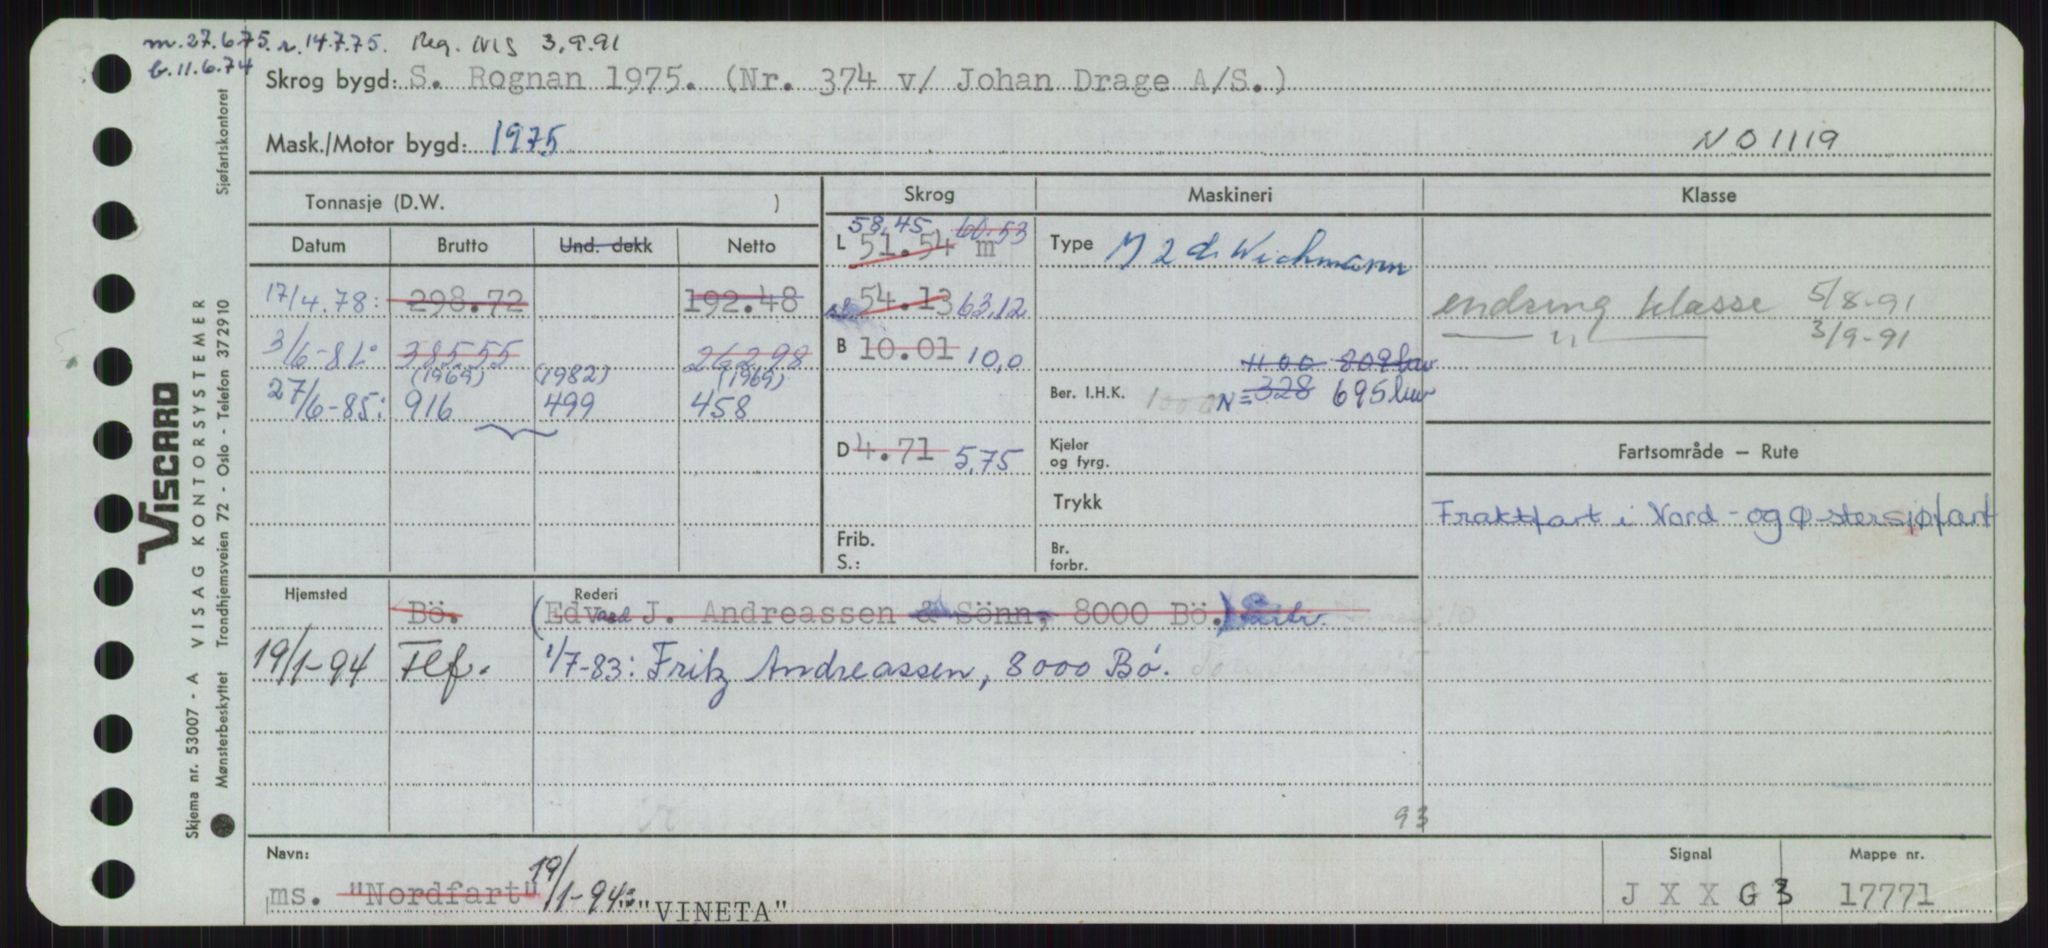 m. 27.6.75. r. 14.7.75. Reg. NIS 3.9.91
b. 11.6.74
Skrog bygd: S. Rognan 1975. (Nr. 374 v/ Johan Drage A/S.)
Mask./Motor bygd: 1975
NO 1119
Tonnasje (D.W. )
Skrog
Maskineri
Klasse
Datum Brutto Und. dekk Netto
58,45 60.53
L 51.54 m
Type M 2 d. Wichmann
17/4.78: 298.72 192.48
54.13 63,12
endring klasse 5/8-91
— " — 3/9-91
3/6-81: 385.55 262.98
B 10.01 10,0
1100 809 kw
(1969) (1982) (1969)
27/6-85: 916 499 458
Ber. I.H.K. 1000 N = 328 695 kw
D 4.71 5,75
Kjeler
og fyrg.
Fartsområde — Rute
Trykk
Fraktfart i Nord- og Østersjøfart
Frib.
S.:
Br.
forbr.
Hjemsted
Rederi
Bö. (Edvard J. Andreassen & Sönn, 8000 Bö.)
19/1-94 Flf. 1/7-83: Fritz Andreassen, 8000 Bö.
93
Navn:
Signal
Mappe nr.
ms. "Nordfart" 19/1-94: "VINETA"
J X X G 3
17771
Skjema nr. 53007 - A VISAG KONTORSYSTEMER
Mønsterbeskyttet Trondhjemsveien 72 - Oslo - Telefon 372910
VISCARD
Sjøfartskontoret